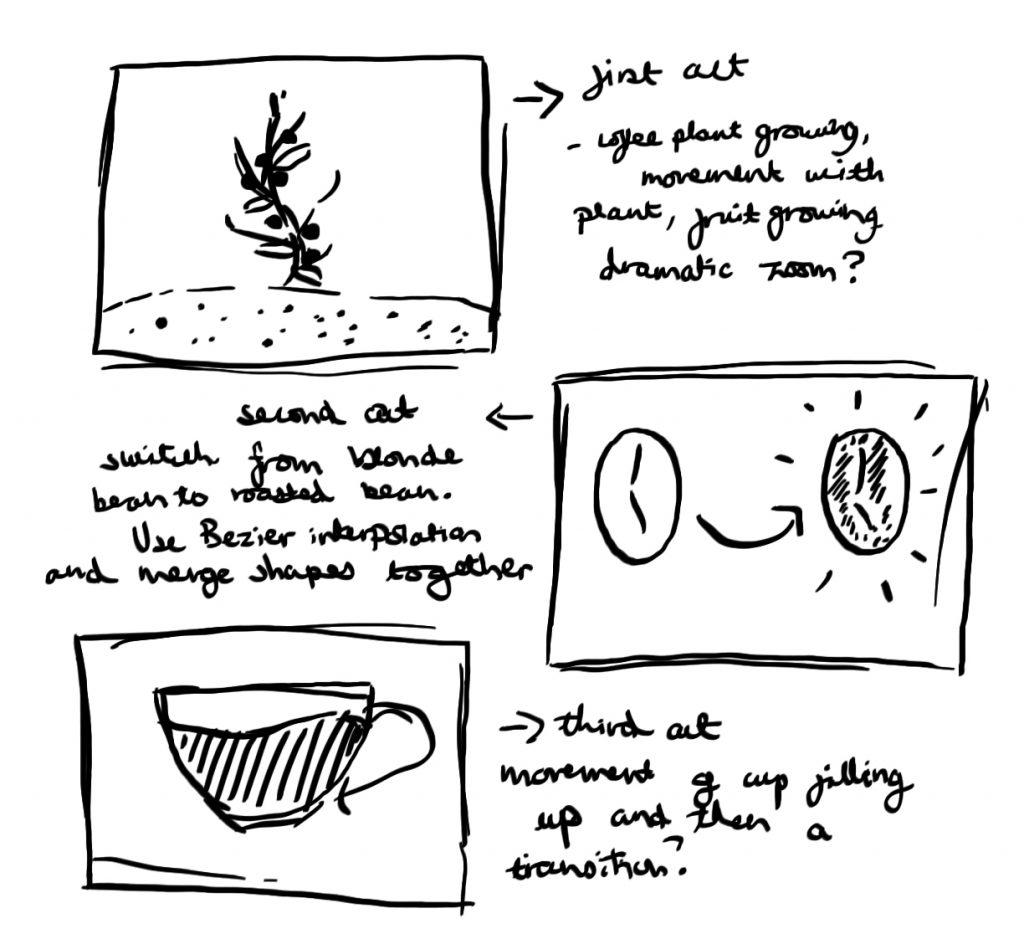 first act
- coffee plant growing,
movement with
plant, fruit growing
dramatic zoom?
second act
switch from blonde
bean to roasted bean.
Use Bezier interpolation
and merge shapes together
third act
movement of cup filling
up and then a
transition?